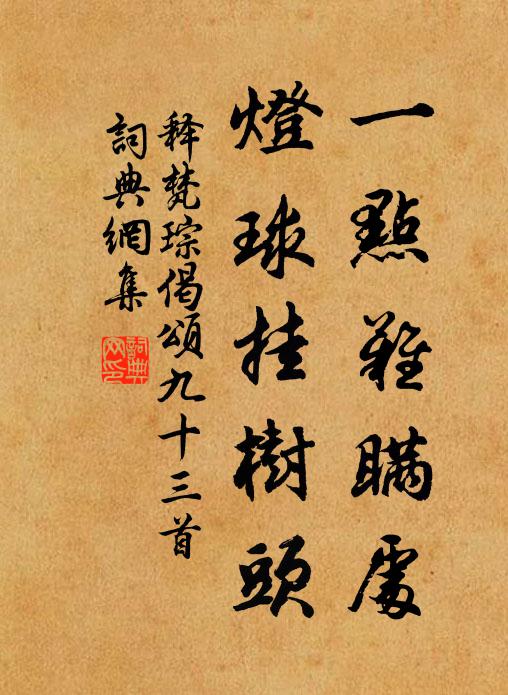 一點難瞞處
燈球挂樹頭
釋梵琮偈頌九十三首
詞典網集
詞典網印